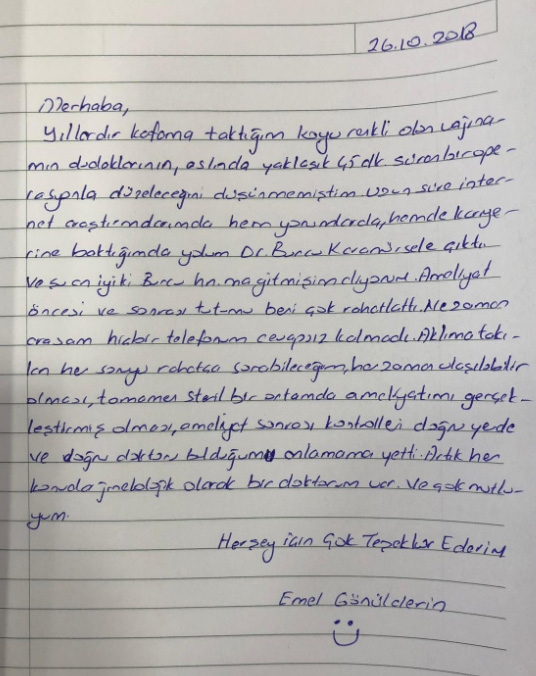 26.10.2018
Merhaba,
Yıllardır kafama taktığım koyu renkli olan vajina-
mın dudaklarının, aslında yaklaşık 45 dk. süren bir ope-
rasyonla düzeleceğini düşünmemiştim uzun süre inter-
net araştırmalarımda hem yorumlarda, hemde kariye-
rine baktığımda yolum Dr. Burcu çıktı
ve şu an iyiki Burcu hn.ma gitmişim diyorum. Ameliyat
öncesi ve sonrası tutumu beni çok rahatlattı. Ne zaman
arasam hiçbir telefonum cevapsız kalmadı. Aklıma takı-
lan her soruyu rahatça sorabileceğim, her zaman ulaşılabilir
olması, tamamen steril bir ortamda ameliyatımı gerçek-
leştirmiş olması, ameliyat sonrası kontrolleri doğru yerde
ve doğru doktoru bulduğumu anlamama yetti. Artık her
konuda jinekolojik olarak bir doktorum var. Ve çok mutlu-
yum.
Herşey için Çok Teşekkür Ederim
Emel